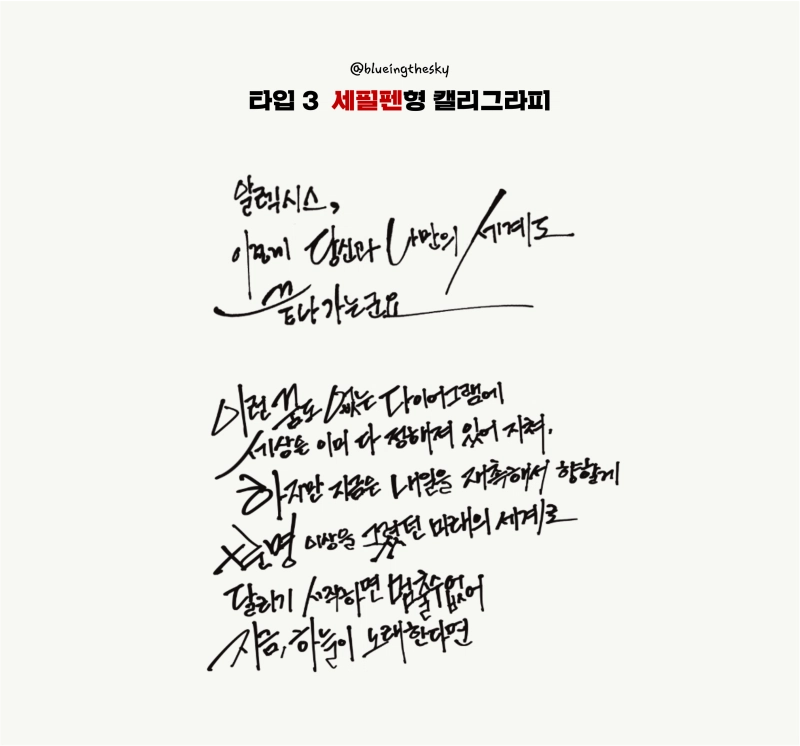 @blueingthesky
타입 3 세필펜형 캘리그라피
알렉시스,
이렇게 당신과 나만의 세계도
끝나 가는군요
이런 꿈도 없는 다이어그램에
세상은 이미 다 정해져 있어 지쳐,
하지만 지금은 내일을 재촉해서 향할게
운명 이상을 그렸던 미래의 세계로
달리기 시작하면 멈출 수 없어
지금, 하늘이 노래한다면